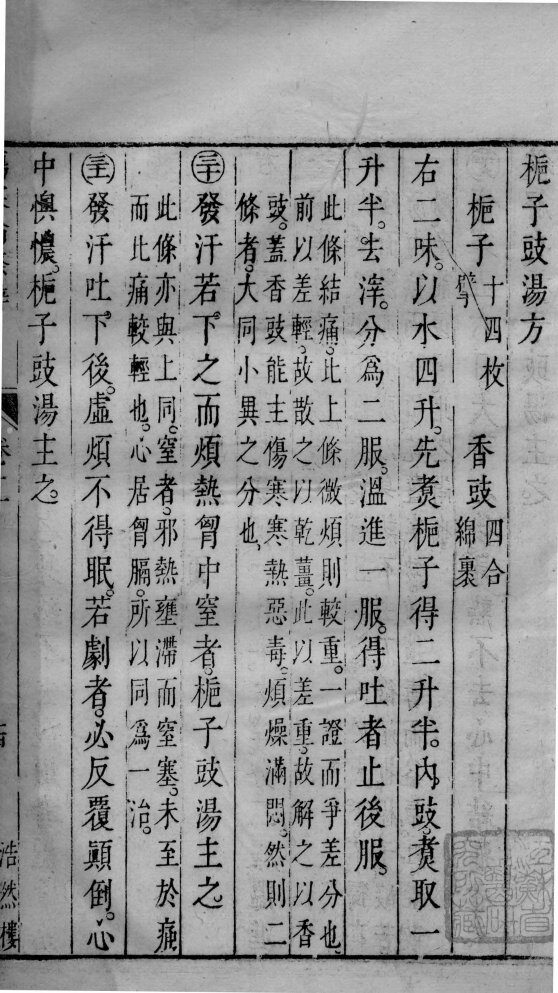 梔子豉湯方
梔子 十四枚 擘 香豉 四合 綿裹
右二味。以水四升。先煑梔子得二升半。內豉。煑取一
升半。去滓。分為二服。溫進一服。得吐者止後服。
此條結痛。比上條微煩則較重。一證而爭差分也
前以差輕。故散之以乾薑。此以差重。故解之以香
豉。葢香豉能主傷寒寒熱惡毒。煩燥滿悶。然則二
條者。大同小異之分也。
三十 發汗若下之而煩熱胷中窒者。梔子豉湯主之
此條亦與上同。窒者。邪熱壅滯而窒塞。未至於痛
而比痛較輕也。心居胷膈。所以同為一治。
三十一 發汗吐下後。虛煩不得眠。若劇者。必反覆顛倒。心
中懊憹。梔子豉湯主之。
浩然樓